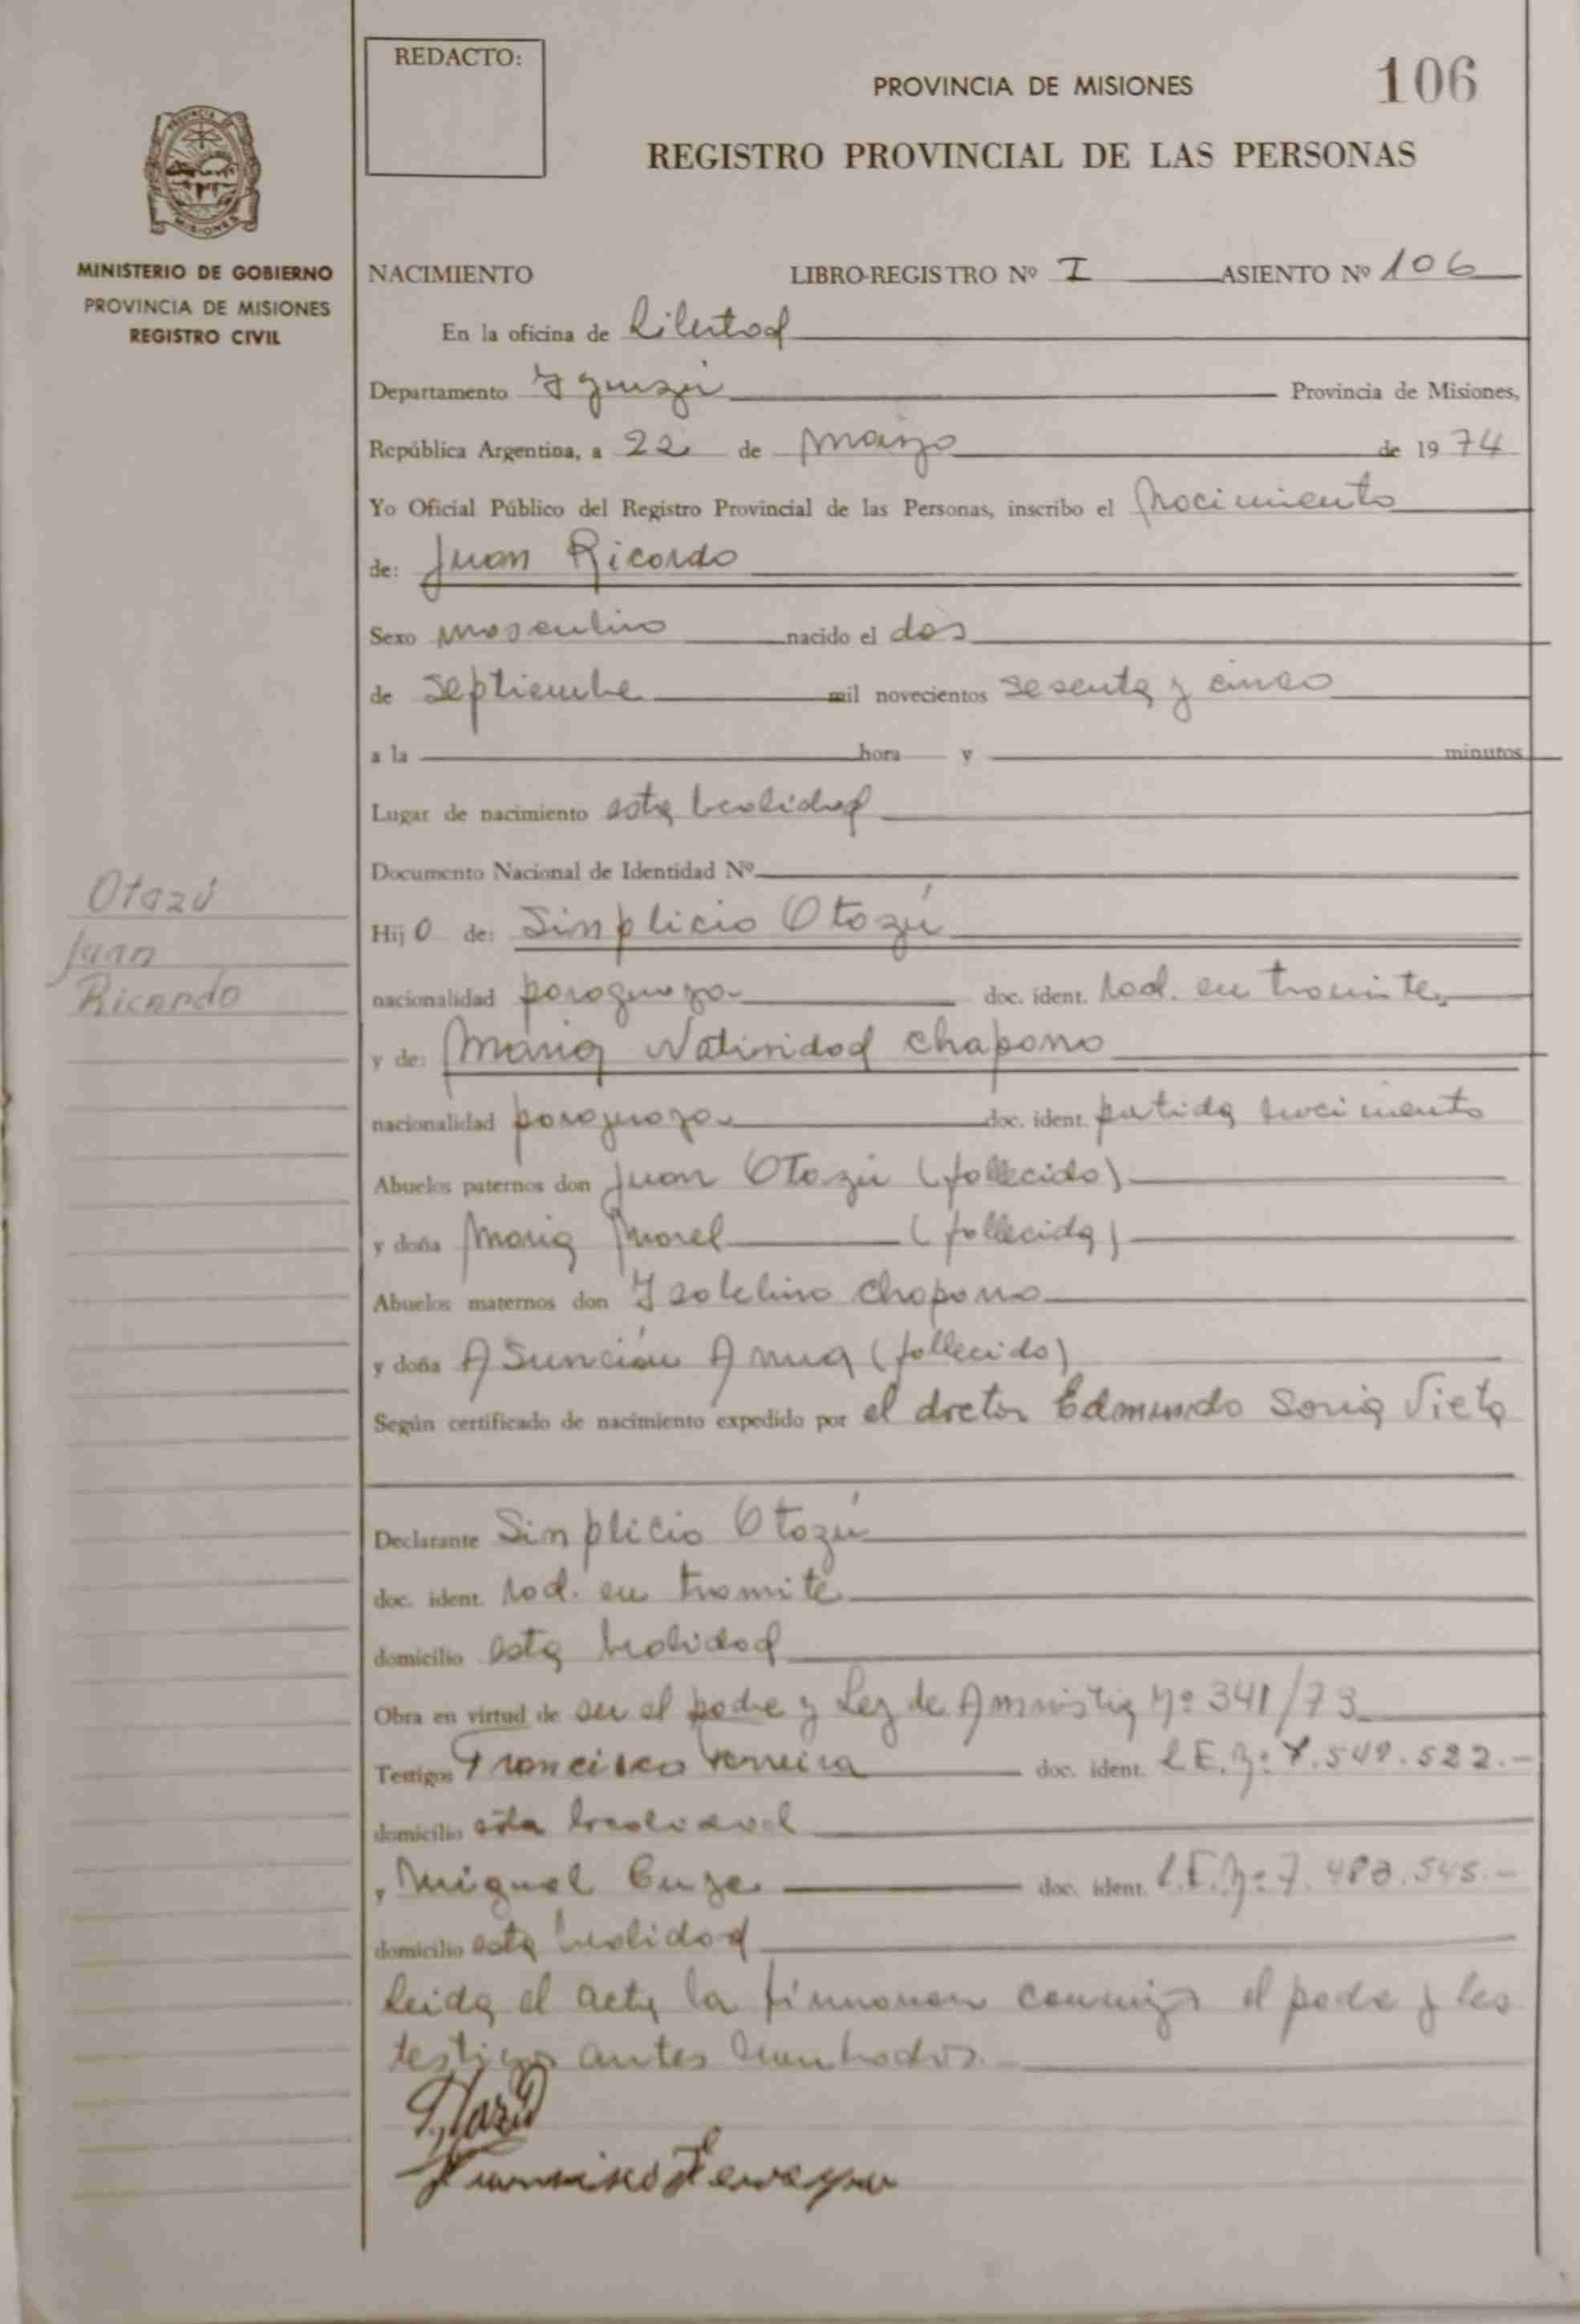 REDACTO:
PROVINCIA DE MISIONES
106
REGISTRO PROVINCIAL DE LAS PERSONAS
PROVINCIA DE
MISIONES
MINISTERIO DE GOBIERNO
PROVINCIA DE MISIONES
REGISTRO CIVIL
NACIMIENTO LIBRO-REGISTRO Nº I ASIENTO Nº 106
En la oficina de Libertad
Departamento Iguazú Provincia de Misiones,
República Argentina, a 22 de marzo de 1974
Yo Oficial Público del Registro Provincial de las Personas, inscribo el nacimiento
de: Juan Ricardo
Sexo masculino nacido el dos
de septiembre mil novecientos sesenta y cinco
a la hora y minutos
Lugar de nacimiento esta localidad
Documento Nacional de Identidad Nº
Otazú
Juan
Ricardo
Hijo de: Simplicio Otazú
nacionalidad paraguaya doc. ident. rad. en tramite
y de: Maria Natividad Chaparro
nacionalidad paraguaya doc. ident. partida nacimiento
Abuelos paternos don Juan Otazú (fallecido)
y doña Maria Morel (fallecida)
Abuelos maternos don Chaparro
y doña Asunción (fallecido)
Según certificado de nacimiento expedido por el doctor Edmundo Soria Vieta
Declarante Simplicio Otazú
doc. ident. rad. en tramite
domicilio esta localidad
Obra en virtud de ser el padre y Ley de Amnistia Nº 341/73
Testigos Francisco Ferreira doc. ident. L.E. Nº 7.549.522.-
domicilio esta localidad
y Miguel doc. ident. L.E. Nº 7.483.545.-
domicilio esta localidad
leida el acta la firmaron conmigo el padre y los
testigos antes nombrados.
Otazú